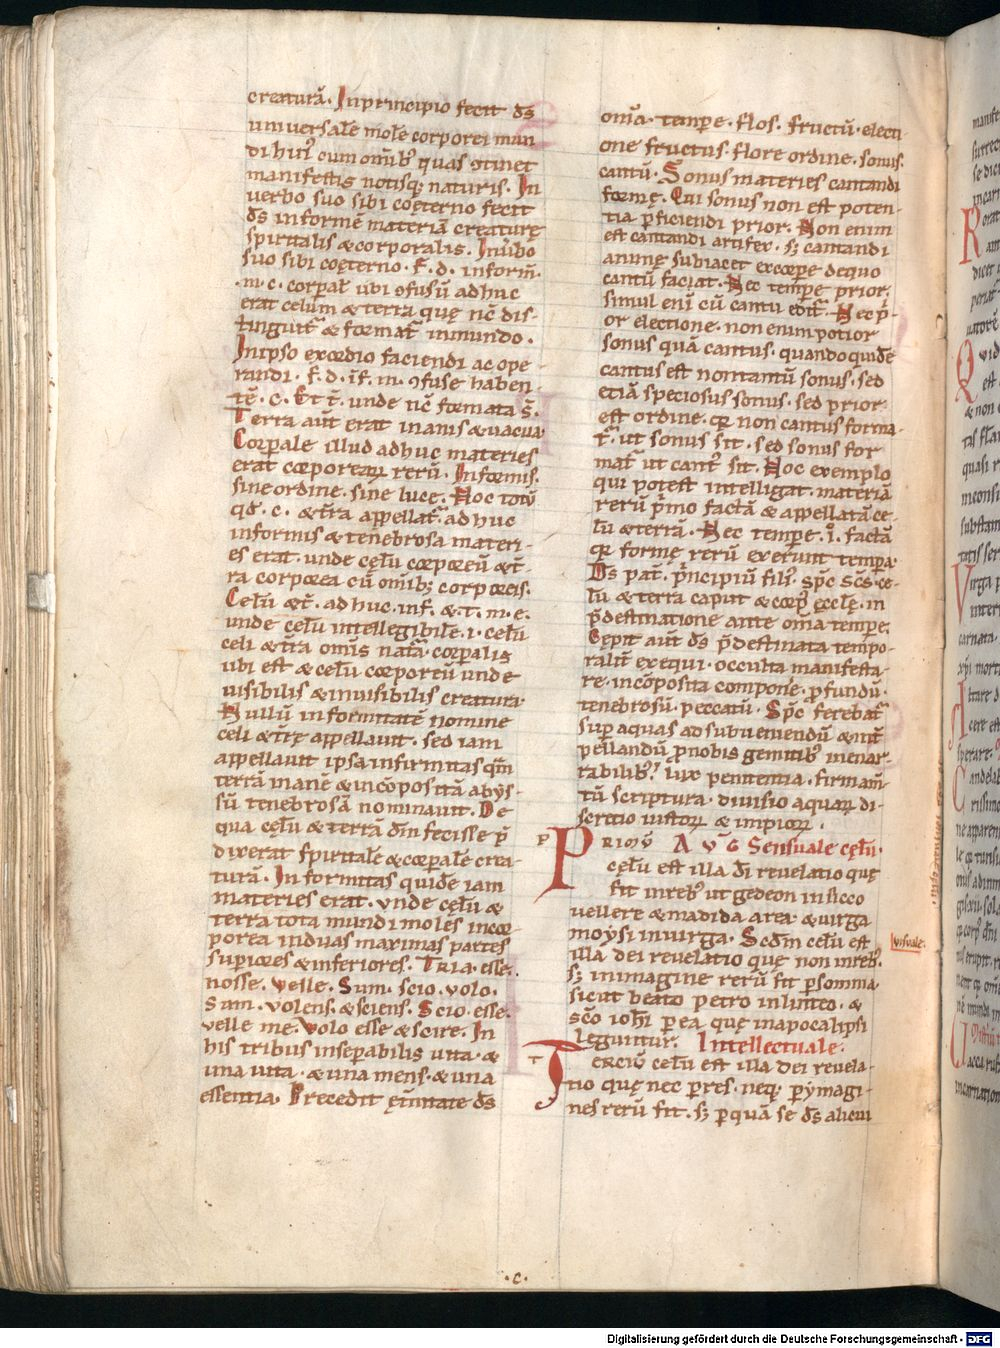 creaturā. In principio fecit d̄s
uniuersalē molē corporei mun
di hui᷒ cum om̄ib᷒ quas ꝯtinet
manifestis notisq; naturis. In
uerbo suo sibi coęterno fecit
d̄s informē materiā creaturę
spiritalis & corporalis. In ūbo
suo sibi coęterno. f. d. inform̄.
.m. c. corporal̄ ubi ꝯfusū adhuc
erat celum & terra quę nc̄ dis-
tinguit᷑ & format᷑ in mundo.
In ipso exordio faciendi ac ope
randi. f. d. īf. m. ꝯfuse haben-
tē. c. Et t̄. unde nc̄ formata s̄.
Terra aūt erat inanis & uacua
Corporale illud adhuc materies
erat corporearum rerū. Informis.
sine ordine. sine luce. Hoc totū
qd̄. c. & t̄ra appellat᷑. adhuc
informis & tenebrosa materi-
es erat. unde cęlū corporeū & t̄-
ra corporea cū om̄ib; corporeis.
Celū & t̄. adhuc. inf. & t. m. e.
unde celū intellegibile. i. celū
celi & t̄ra om̄is nat᷑a corporalis
ubi est & celū corporeū unde
uisibilis & inuisibilis creatura
Nullū in formitatē nomine
celi & t̄rę appellauit. sed iam
appellauit ipsa infirmitas qm̄
terrā manē & incōpositā abys-
sū tenebrosā nominauit. De
qua cęlū & terrā dm̄ fecisse p̄
dixerat spiritalē & corporalē crea-
turā. In formitas quidē iam
materies erat. unde cęlū &
terra tota mundi moles incor
porea in duas maximas partes
superiores & inferiores. Tria. esse.
nosse. velle. Sum. scio. volo.
Sum. volens. & sciens. Scio. esse.
velle me. Volo esse & scire. In
his tribus inseparabilis uita. &
una uita. & una mens. & una
essentia. Precedit ęt̄nitate d̄s
om̄ia. tempore. flos. fructū. electi-
one fructus. flore ordine. sonus.
cantū. Sonus materies cantandi
formę. Qui sonus non est poten-
tia ꝑficiendi prior. Non enim
est cantandi artifex. s; cantandi
animę subiacet ex corpore de quo
cantū faciat. Nec tempore prior.
simul eni᷒ cū cantu edit᷑. Nec pͥ-
or electione. non enim potior
sonus quā cantus. quandoquidē
cantus est non tantū sonus. sed
etiā speciosus sonus. sed prior
est ordine. qꝛ non cantus forma-
t᷑. ut sonus sit. sed sonus for
mat᷑ ut cant᷒ sit. Hoc exemplo
qui potest intelligat. materiā
rerū pͥmo factā & appellatā ce-
lū & terrā. Nec tempore. i. factā
qꝛ formę rerū exerunt tempora.
D̄s pat᷑. pͥncipiū fili᷒. spc̄ sc̄s. ce-
lū & terra caput & corp᷒ ęcclę. in
p̄destinatione ante om̄ia tempore.
Cepit aūt d̄s p̄destinata tempo-
raliū exequi. occulta manifesta-
re. incōposita componere. ꝓfundū.
tenebrosū. peccatū. Spc̄ ferebat᷑
sup aquas ad subueniendū & int̄
pellandū ꝓ nobis gemitib᷒ inenar-
rabilib᷒. lux penitentia. firmam̄
tū scriptura. diuisio aquarum di-
scretio iustorum & impiorum.
PRIMŪ AVG Sensuale cęlū.
cęlū est illa d̄i reuelatio quę
fit in reb᷒ ut gedeon in sicco
uellere & madida area. & uirga
moysi in uirga. Scdm̄ celū est
illa dei reuelatio que non in reb᷒.
s; in imagine rerū fit ꝑ somnia.
sicut beato petro in linteo. &
sc̄o ioh̄i ꝑ ea quę in apocalipsi
leguntur. Intellectuale.
TERCIŪ celū est illa dei reuela-
tio quę nec ꝑ res. neq; ꝑ ymagi-
nes rerū fit. s; ꝑ quā se d̄s alicui
P
T
visuale.
.c.
Digitalisierung gefördert durch die Deutsche Forschungsgemeinschaft - DFG